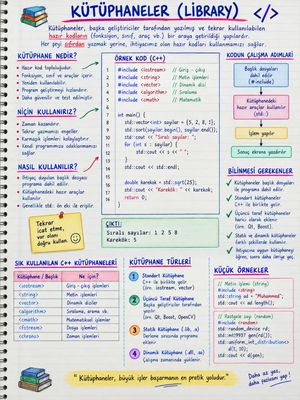 KÜTÜPHANELER (LIBRARY) </>
Kütüphaneler, başka geliştiriciler tarafından yazılmış ve tekrar kullanılabilen
hazır kodların (fonksiyon, sınıf, araç vb.) bir araya getirildiği yapılardır.
Her şeyi sıfırdan yazmak yerine, ihtiyacımız olan hazır kodları kullanmamızı sağlar.
KÜTÜPHANE NEDİR?
Hazır kod topluluğudur.
Fonksiyon, sınıf ve araçlar içerir.
Tekrar kullanılabilir.
Program geliştirmeyi hızlandırır.
Daha güvenilir ve test edilmiştir.
NİÇİN KULLANIRIZ?
Zaman kazandırır.
Tekrar yazmamızı engeller.
Karmaşık işlemleri kolaylaştırır.
Kendi programımıza odaklanmamızı sağlar.
NASIL KULLANILIR?
İhtiyaç duyulan başlık dosyası
programa dahil edilir.
Kütüphanedeki hazır kodlar kullanılır.
Genellikle std:: ön eki ile erişilir.
Tekrar
icat etme,
var olanı
doğru kullan.
ÖRNEK KOD (C++)
1 #include <iostream> // Giriş - çıkış
2 #include <string> // Metin işlemleri
3 #include <vector> // Dinamik dizi
4 #include <algorithm> // Sıralama
5 #include <cmath> // Matematik
int main() {
std::vector<int> sayilar = {5, 2, 8, 1};
std::sort(sayilar.begin(), sayilar.end());
std::cout << "Sıralı sayılar: ";
for (int s : sayilar) {
std::cout << s << " ";
}
std::cout << std::endl;
double karekok = std::sqrt(25);
std::cout << "Karekök: " << karekok;
return 0;
}
ÇIKTI:
Sıralı sayılar: 1 2 5 8
Karekök: 5
KODUN ÇALIŞMA ADIMLARI
Başlık dosyaları
dahil edilir
(#include)
Kütüphanedeki
hazır araçlar
kullanılır (std::)
İşlem yapılır
Sonuç ekrana yazdırılır
BİLİNMESİ GEREKENLER
Kütüphaneler başlık dosyaları
ile programa dahil edilir.
Standart kütüphaneler
C++ ile birlikte gelir.
Üçüncü taraf kütüphaneler
harici olarak eklenir
(örn. Qt, Boost).
Statik ve dinamik kütüphane
olmak üzere ikiye ayrılır.
Kütüphaneler, performans ve
kod kalitesini artırır.
İhtiyacına uygun kütüphaneyi
öğren, sonra daha ileri geç.
SIK KULLANILAN C++ KÜTÜPHANELERİ
Kütüphane / Başlık Ne için?
<iostream> Giriş - çıkış işlemleri
<string> Metin işlemleri
<vector> Dinamik diziler
<algorithm> Sıralama, arama vb.
<cmath> Matematiksel işlemler
<fstream> Dosya işlemleri
<chrono> Zaman işlemleri
KÜTÜPHANE TÜRLERİ
1 Standart Kütüphane
C++ ile birlikte gelir.
(örn. iostream, vector)
2 Üçüncü Taraf Kütüphane
Başka geliştiriciler tarafından
yazılır.
(örn. Qt, Boost, OpenCV)
3 Statik Kütüphane (.lib, .a)
Derleme sırasında
programa eklenir.
4 Dinamik Kütüphane (.dll, .so)
Çalışma zamanında yüklenir.
KÜÇÜK ÖRNEKLER
// Metin işlemi (string)
#include <string>
std::string ad = "Muhammed";
std::cout << ad.length();
// Rastgele sayı (random)
#include <random>
std::random_device rd;
std::mt19937 gen(rd());
std::uniform_int_distribution<>
d(1, 10);
std::cout << d(gen);
"Kütüphaneler, büyük işler başarmanın en pratik yoludur."
Daha az yaz,
daha fazlasını yap!